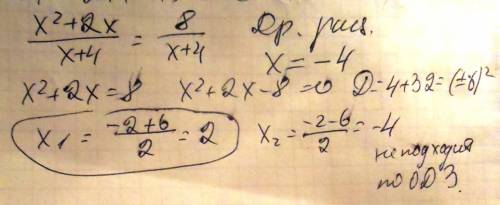 x²+2x / x+4 = 8 / x+4
Др. рац.
x = -4
x²+2x=8 x²+2x-8=0 D=4+32=(±6)²
x₁ = -2+6 / 2 = 2 x₂ = -2-6 / 2 = -4
не подходит
по ОДЗ.